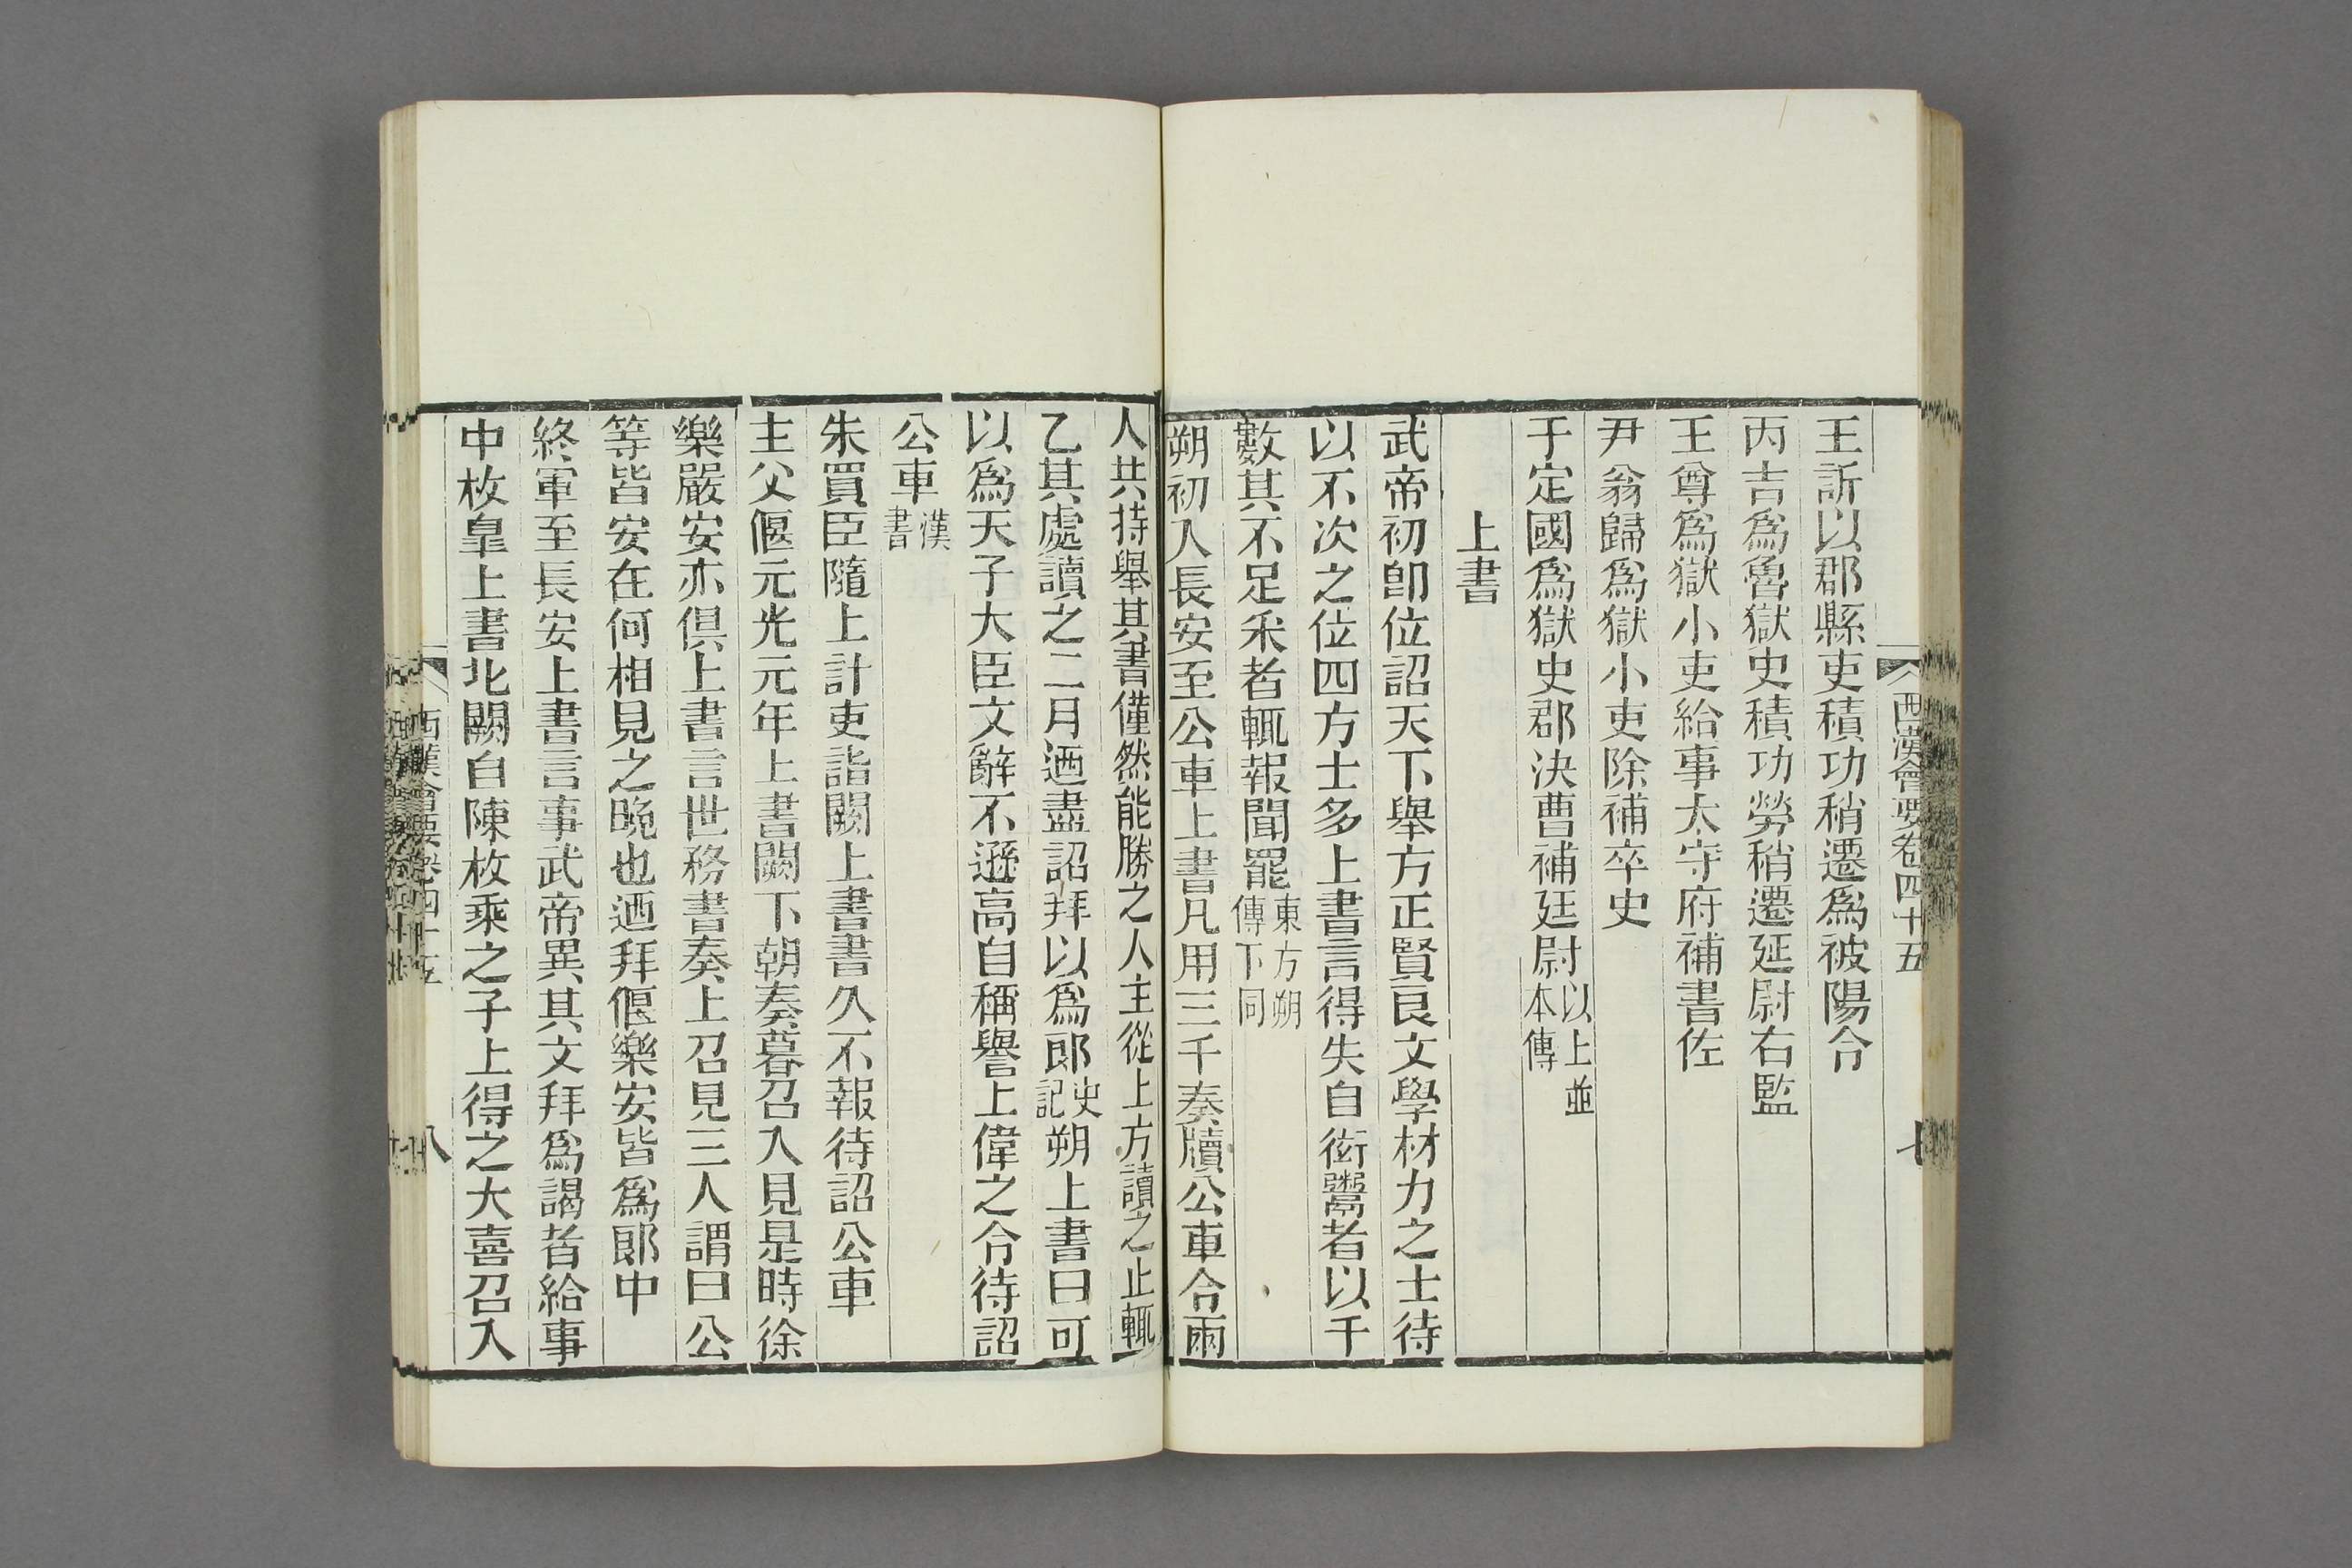 西漢會要卷四十五
七
王訢以郡縣吏積功稍遷爲被陽令
丙吉爲魯獄史積功勞稍遷延尉右監
王尊爲獄小吏給事太守府補書佐
尹翁歸爲獄小吏除補卒史
于定國爲獄史郡決曹補廷尉以上並本傳
上書
武帝初卽位詔天下舉方正賢良文學材力之士待
以不次之位四方士多上書言得失自衒鬻者以千
數其不足采者輒報聞罷東方朔傳下同
朔初入長安至公車上書凡用三千奏牘公車令兩
人共持舉其書僅然能勝之人主從上方讀之止輒
乙其處讀之二月迺盡詔拜以爲郎史記朔上書曰可
以爲天子大臣文辭不遜高自稱譽上偉之令待詔
公車漢書
朱買臣隨上計吏詣闕上書書久不報待詔公車
主父偃元光元年上書闕下朝奏暮召入見是時徐
樂嚴安亦俱上書言世務書奏上召見三人謂曰公
等皆安在何相見之晚也迺拜偃樂安皆爲郎中
終軍至長安上書言事武帝異其文拜爲謁者給事
中枚皐上書北闕自陳枚乘之子上得之大喜召入
西漢會要卷四十五
八